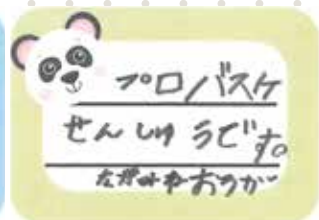 プロバスケ
せんしゅうです。